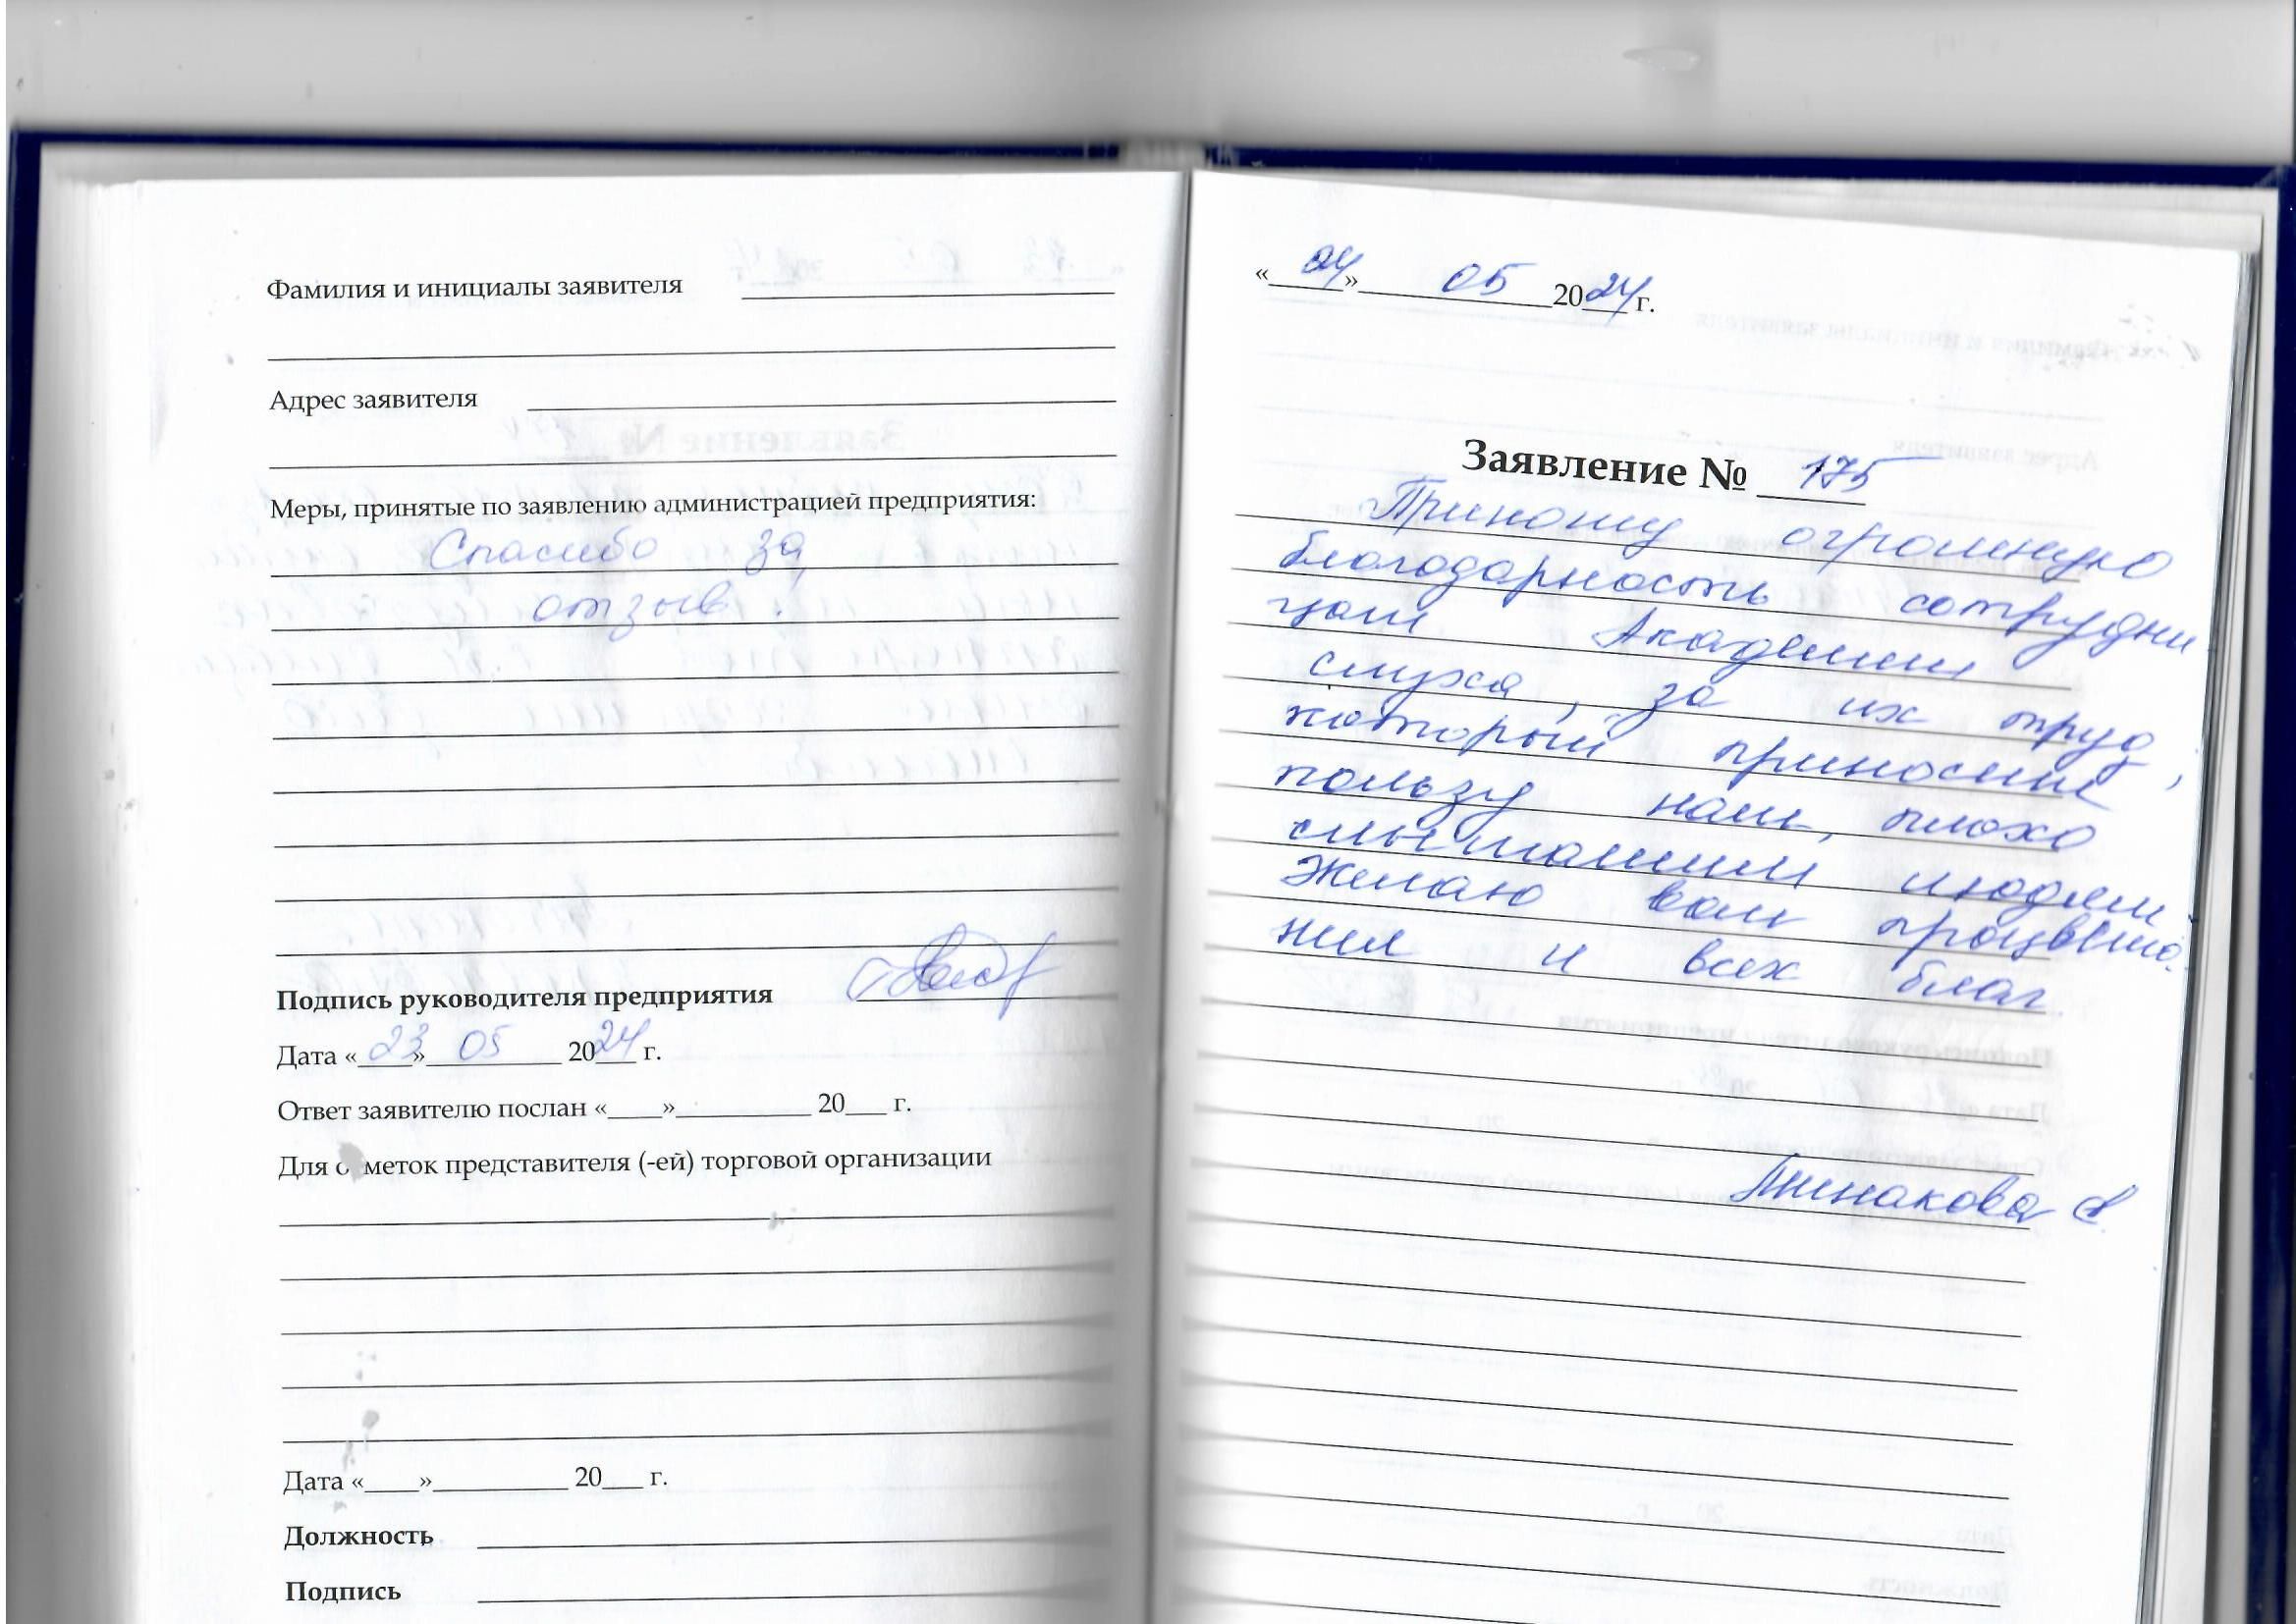 Фамилия и инициалы заявителя
Адрес заявителя
Меры, принятые по заявлению администрацией предприятия:
Спасибо за
отзыв!
Подпись руководителя предприятия
Дата «23» 05 2024 г.
Ответ заявителю послан «____»__________ 20___ г.
Для отметок представителя (-ей) торговой организации
Дата «____»__________ 20___ г.
Должность
Подпись
«04» 05 2024 г.
Заявление № 175
Приношу огромную
благодарность сотрудни
цам Академии
слуха, за их труд,
который приносит
пользу нам, плохо
слышащим людям.
Желаю вам процвета-
ния и всех благ.